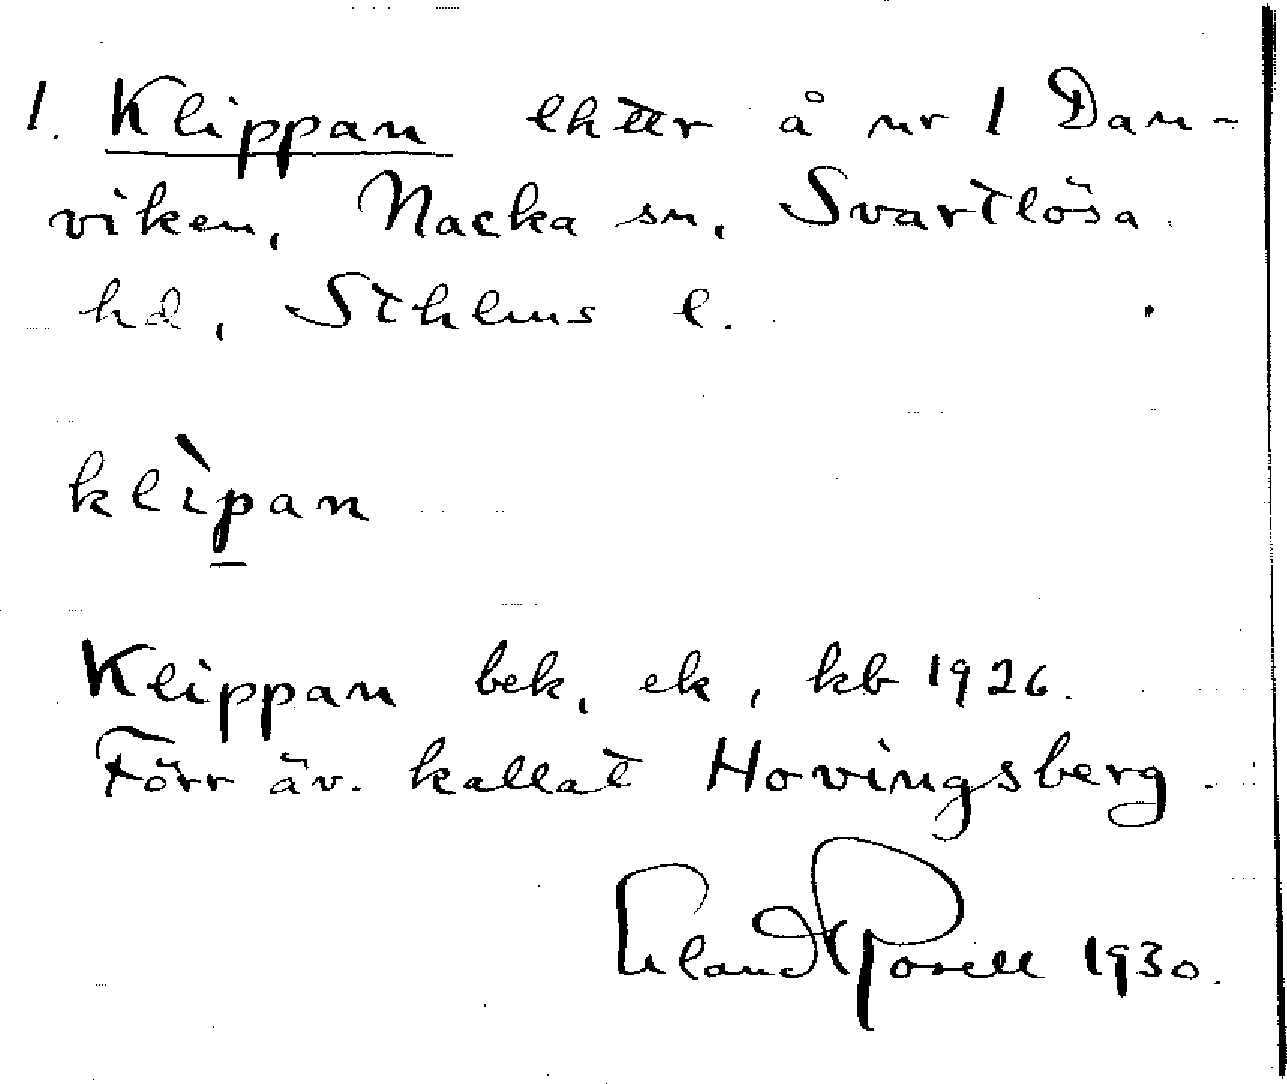 1. Klippan lhttr å nr 1 Dan-
viken, Nacka sn, Svartlösa
hd, Sthlms l.
klìp̱an
Klippan bek, ek, kb 1926.
Förr äv. kallat Hovingsberg.
Erland Rosell 1930.